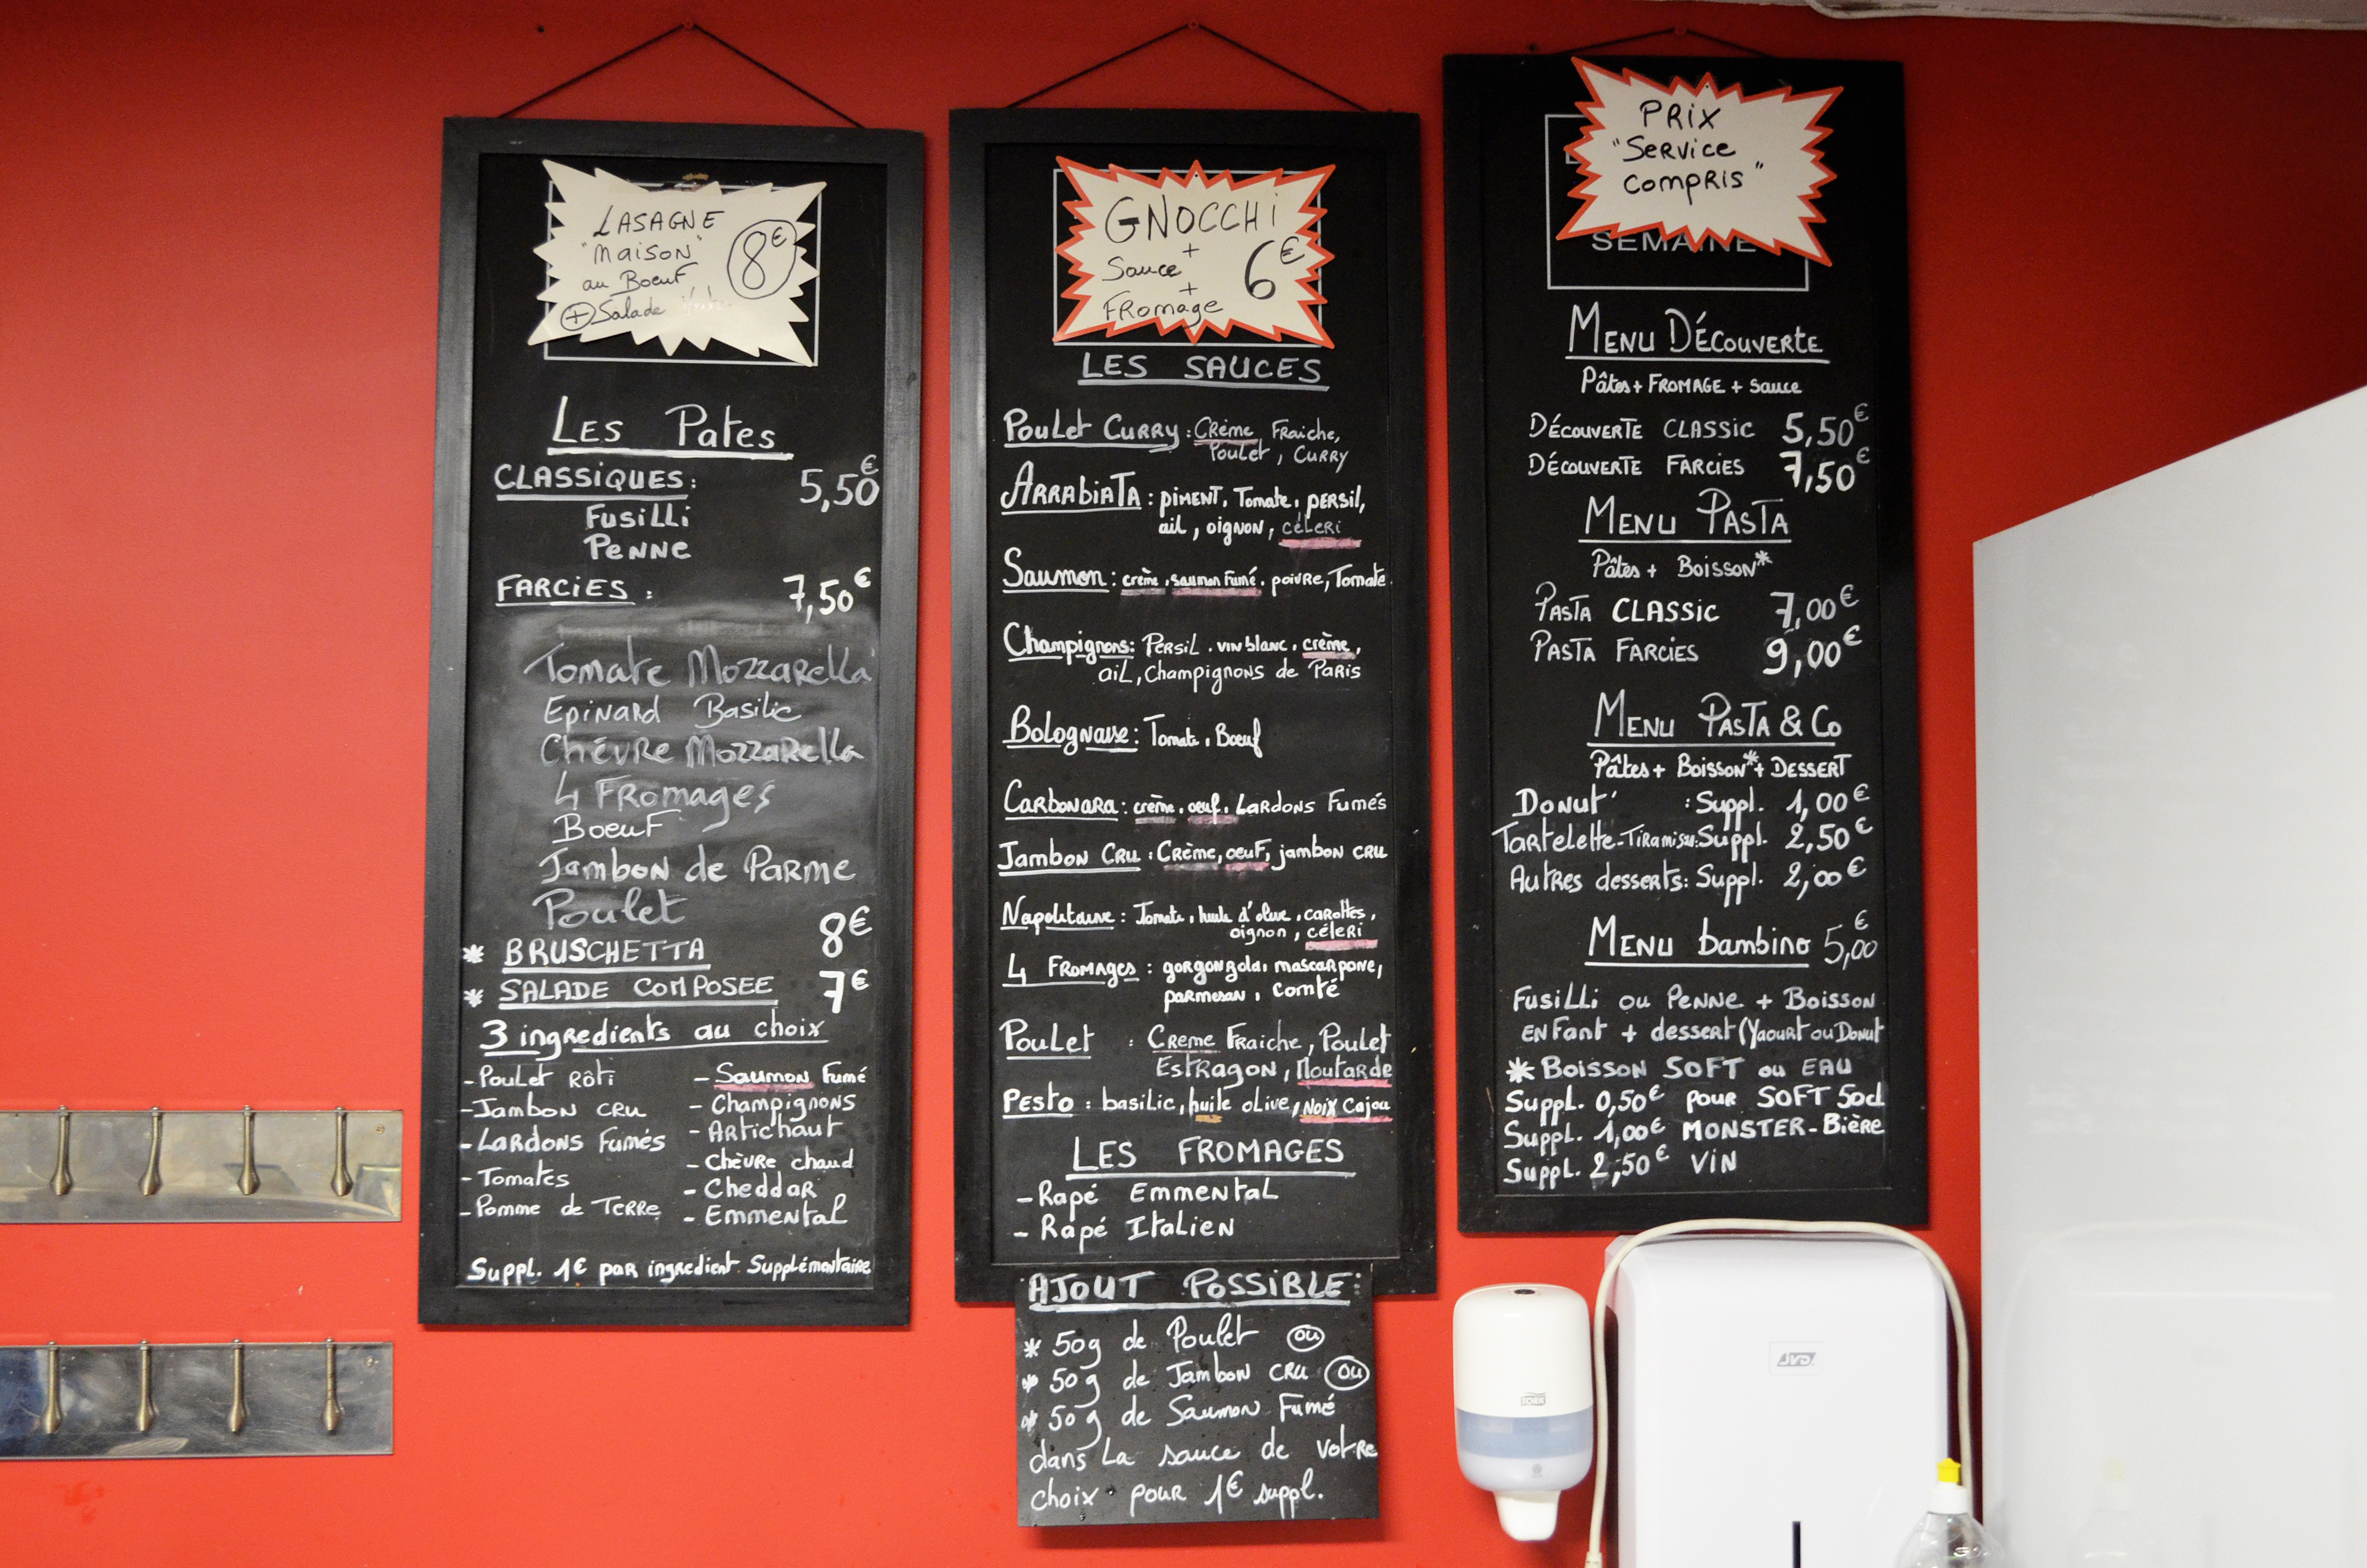 LASAGNE
"Maison"
au Boeuf
+ Salade
8€
Les Pates
CLASSIQUES: 5,50€
Fusilli
Penne
FARCIES: 7,50€
Tomate Mozzarella
Epinard Basilic
Chèvre Mozzarella
4 Fromages
Boeuf
Jambon de Parme
Poulet
* BRUSCHETTA 8€
* SALADE COMPOSEE 7€
3 ingredients au choix
- Poulet Rôti
- Jambon cru
- Lardons Fumés
- Tomates
- Pomme de Terre
- Saumon Fumé
- Champignons
- Artichaut
- Chèvre chaud
- Cheddar
- Emmental
Suppl. 1€ par ingredient Supplémentaire
GNOCCHI
+
Sauce
+
Fromage
6€
LES SAUCES
Poulet Curry: Crème Fraiche,
Poulet, Curry
Arrabiata: piment, Tomate, persil,
ail, oignon, céleri
Saumon: crème, saumon fumé, poivre, Tomate
Champignons: Persil, vin blanc, crème,
ail, Champignons de Paris
Bolognaise: Tomate, Boeuf
Carbonara: crème, oeuf, Lardons Fumés
Jambon Cru: Crème, oeuf, jambon cru
Napolitaine: Tomate, huile d'olive, carottes,
oignon, céleri
4 Fromages: gorgongola, mascarpone,
parmesan, comté
Poulet: Creme Fraiche, Poulet
Estragon, Moutarde
Pesto: basilic, huile olive, Noix Cajou
LES FROMAGES
- Rapé Emmental
- Rapé Italien
AJOUT POSSIBLE:
* 50g de Poulet ou
* 50g de Jambon cru ou
* 50g de Saumon Fumé
dans La sauce de votre
choix pour 1€ suppl.
PRIX
"Service
compris"
SEMAINE
Menu Découverte
Pâtes + FROMAGE + Sauce
Découverte CLASSIC 5,50€
Découverte FARCIES 7,50€
Menu Pasta
Pâtes + Boisson*
Pasta CLASSIC 7,00€
Pasta Farcies 9,00€
Menu Pasta & Co
Pâtes + Boisson* + DESSERT
Donut' : Suppl. 1,00€
Tartelette-Tiramisu: Suppl. 2,50€
Autres desserts: Suppl. 2,00€
Menu bambino 5,00€
Fusilli ou Penne + Boisson
enfant + dessert (Yaourt ou Donut
* Boisson SOFT ou EAU
Suppl. 0,50€ pour SOFT 50cl
Suppl. 1,00€ MONSTER-Bière
Suppl. 2,50€ VIN
TORK
JVD